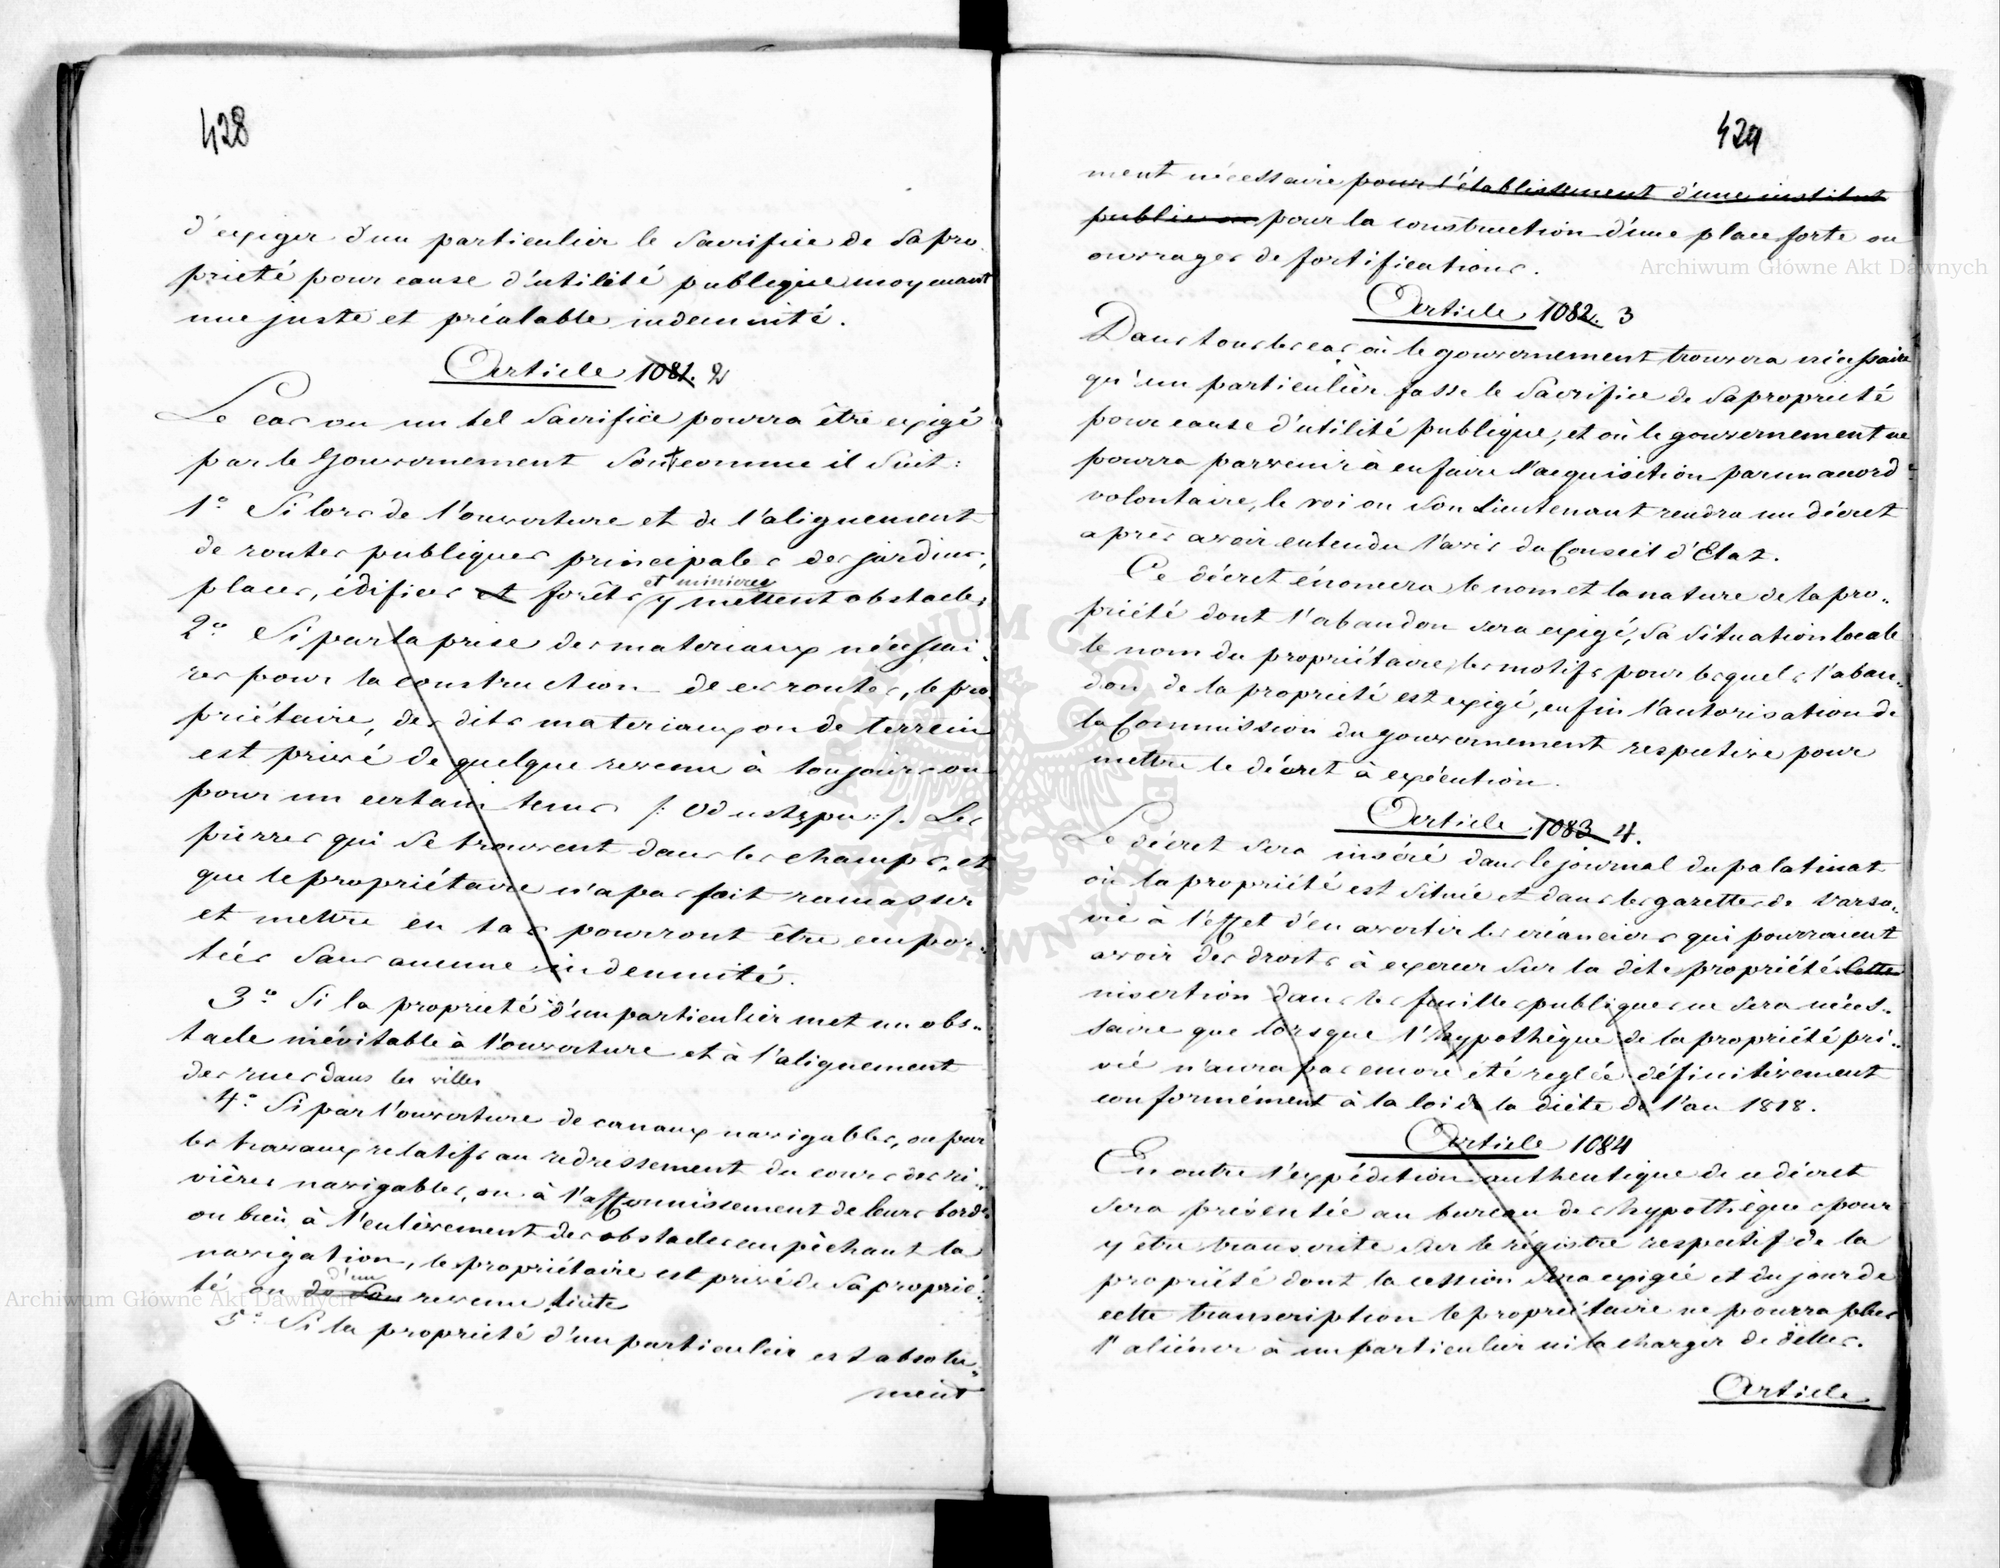 428
d'exiger d'un particulier le Sacrifice de Sa pro-
prieté pour cause d'utilité publique moyenant
une juste et préalable indemnité.
Article 1081. 2
Le cas ou un tel Sacrifice pourra être exigé
par le Gouvernement Sont comme il Suit:
1° Si lors de l'ouverture et de l'alignement
de routes publiques principales des jardins,
places, édifices et forêts et minieres y mettent obstacle,
2° Si par la prise des materiaux nécessai-
res pour la construction de ces routes, le pro-
priétaire, des dits materiaux ou de terrein
est privé de quelque revenu à toujours ou
pour un certain tems /: Odustępu :/. Les
pierres qui Se trouvent dans les champs, et
que le propriétaire n'a pas fait ramasser
et mettre en tas pourront être empor-
tées Sans aucune indemnité.
3° Si la propriété d'un particulier met un obs-
tacle inévitable à l'ouverture et à l'alignement
des rues dans les villes
4° Si par l'ouverture de canaux navigables, ou par
les travaux relatifs au redressement du cours des ri-
vières navigables, ou à l'affermissement de leurs bords
ou bien à l'enlèvement des obstacles empêchant la
navigation, le propriétaire est privé de Sa proprié-
té ou de Son d'un revenu licite
5° Si la propriété d'un particulier est absolu-
ment
429
ment nécessaire pour l'établissement d'une institut
public ou pour la construction d'une place forte ou
ouvrages de fortifications.
Article 1082. 3
Dans tous les cas où le gouvernement trouvera nécessaire
qu'un particulier fasse le Sacrifice de Sa propriété
pour cause d'utilité publique, et où le gouvernement ne
pourra parvenir à en faire l'acquisition par un accord
volontaire, le roi ou Son Lieutenant rendra un décret
après avoir entendu l'avis du Conseil d'Etat.
Ce décret énoncera le nom et la nature de la pro-
priété dont l'abandon sera exigé, Sa Situation locale
le nom du propriétaire, les motifs pour lesquels l'aban-
don de la propriété est exigé, enfin l'autorisation de
la Commission du gouvernement respective pour
mettre le décret à exécution.
Article 1083 4.
Le décret Sera inséré dans le journal du palatinat
où la propriété est Située et dans les gazettes de Varso-
vie à l'effet d'en avertir les créanciers qui pourraient
avoir des droits à exercer Sur la dite propriété. Cette
insertion dans les feuilles publiques ne Sera néces-
saire que lorsque l'hypothèque de la propriété pri-
vée n'aura pas encore été reglée définitivement
conformément à la loi de la diète de l'an 1818.
Article 1084
En outre l'expédition authentique de ce décret
Sera présentée au bureau des hypothèques pour
y être transcrite Sur le régistre respectif de la
propriété dont la cession Sera exigée et du jour de
cette transcription le propriétaire ne pourra plus
l'aliéner à un particulier ni la charger de dettes.
Article
Archiwum Główne Akt Dawnych
Archiwum Główne Akt Dawnych
ARCHIWUM GŁÓWNE AKT DAWNYCH